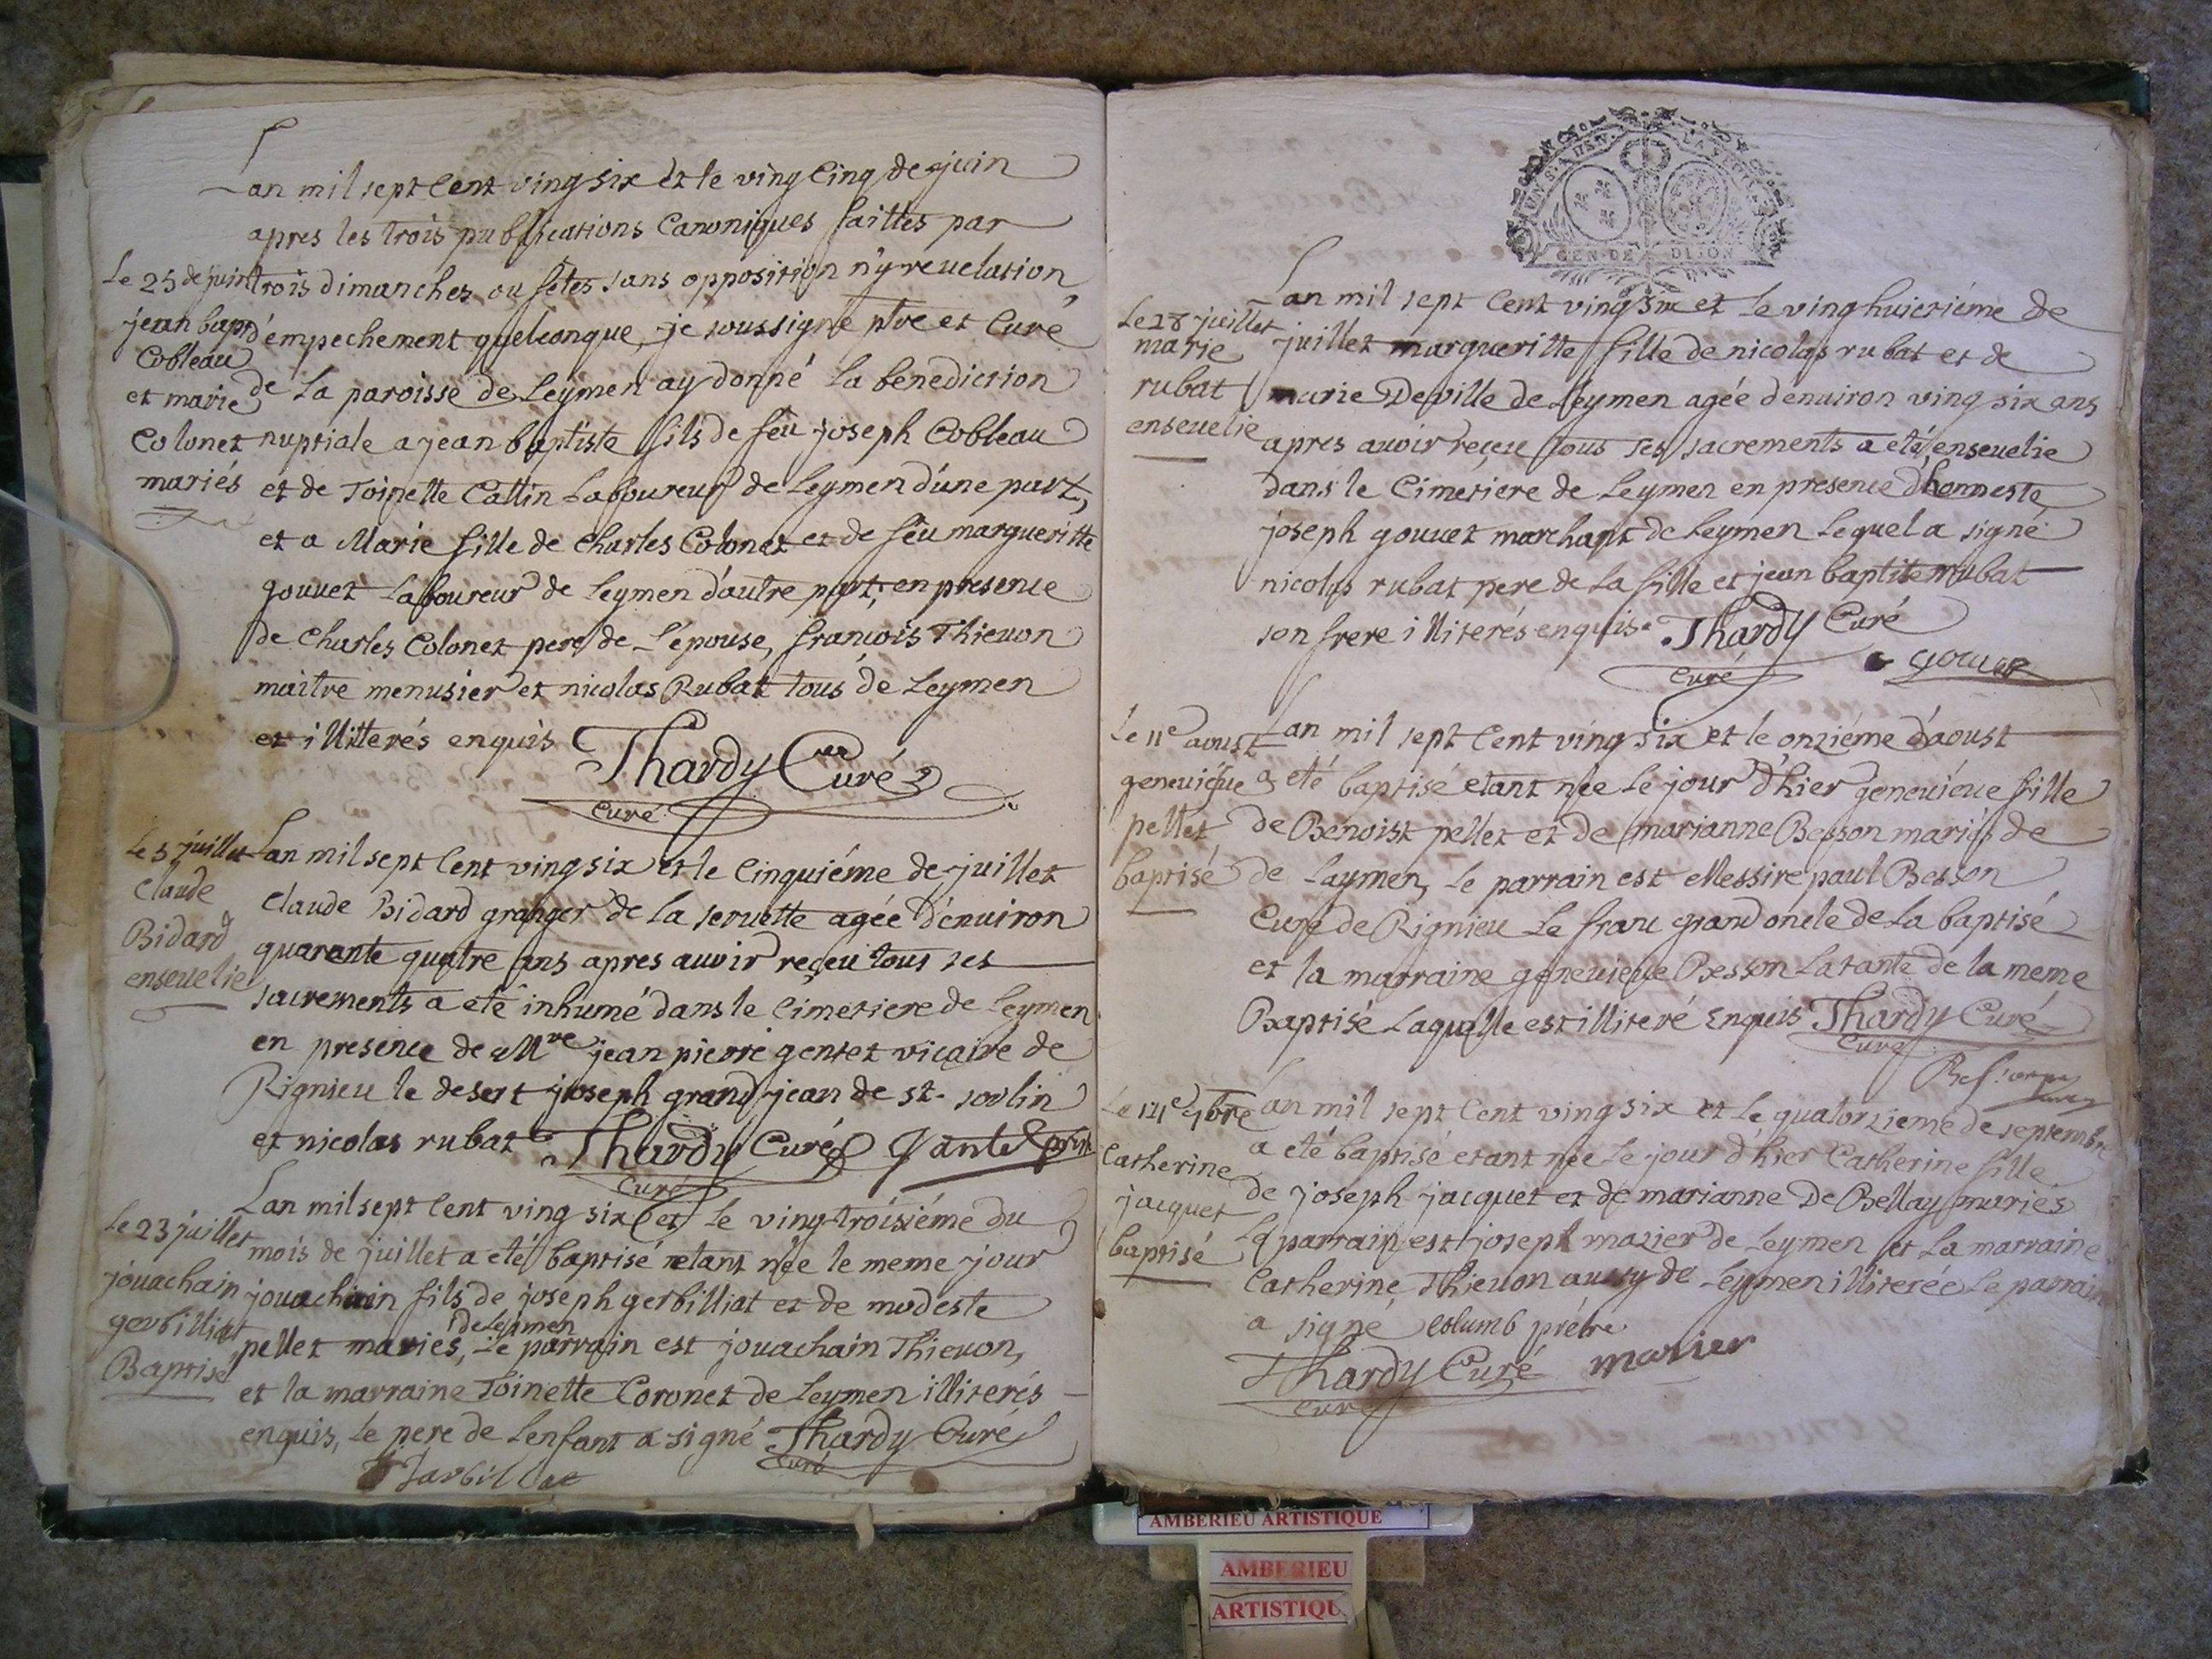 Lan mil sept Cent ving six et le ving Cinq de juin
apres les trois publications Canoniques faittes par
Le 25 de juin
trois dimanches ou fetes sans opposition n'y revelation,
jean bapt
d'empechement quelconque, je soussigné ptre et Curé
Cobleau
et marie
de La paroisse de Leymen ay donné La benediction
Colonet
nuptiale a jean baptiste fils de feu joseph Cobleau
mariés
et de Toinette Cattin Laboureur de Leymen d'une part,
et a Marie fille de Charles Colonet et de feu margueritte
gouvet Laboureur de Leymen d'autre part, en presence
de Charles Colonet pere de L'épouse, francois Thievon
maitre menusier et nicolas Rubat tous de Leymen
et illitterés enquis Thardy Curé
Curé
Le 5 juillet
Lan mil sept Cent ving six et le Cinquiéme de juillet
Claude
Claude Bidard granger de la servette agée d'environ
Bidard
quarante quatre ans apres avoir reçeu tous ses
ensevelie
sacrements a eté inhumé dans le Cimetiere de Leymen
en presence de Mre jean pierre gentet vicaire de
Rignieu le desert joseph grand jean de st. sorlin
et nicolas rubat Thardy Curé
Curé
Lan mil sept Cent ving six et Le ving-troisiéme du
Le 23 juillet
mois de juillet a eté baptisé etant née le meme jour
jouachain
jouachain fils de joseph gerbilliat et de modeste
gerbilliat
de Leymen
pellet mariés, Le parrain est jouachain Thievon,
Baptisé
et la marraine Toinette Coronet de Leymen illiterés
enquis, Le pere de Lenfant a signé Thardy Curé
Curé
GEN·DE DIJON
Lan mil sept Cent ving six et Le ving huictiéme de
Le 28 juillet
juillet margueritte fille de nicolas rubat et de
marie
rubat
marie Deville de Leymen agée d'environ ving six ans
ensevelie
apres avoir reçeu tous ses sacrements a eté ensevelie
dans le Cimetiere de Leymen en presence d'honneste
joseph gouvet marchant de Leymen Lequel a signé
nicolas rubat pere de La fille et jean baptite rubat
son frere illiterés enquis. Thardy Curé
Curé
gouvet
Le 11e aoust
Lan mil sept Cent ving six et le onziéme d'aoust
genevieve
a eté baptisé etant née Le jour d'hier genevieve fille
pellet
de Benoist pellet et de marianne Besson mariés de
baptisé
de Laymen, Le parrain est Messire paul Besson
Curé de Rignieu Le franc grand oncle de La baptisé
et la marraine genevieve Besson La tante de la meme
Baptisé Laquelle est illiteré Enquis Thardy Curé
Curé
Le 14e 7bre
Lan mil sept Cent ving six et Le quatorzieme de septembre
a eté baptisé etant née Le jour d'hier Catherine fille
Catherine
de joseph jacquet et de marianne De Bellay mariés
jacquet
Le parrain est joseph mazier de Leymen et La marraine
baptisé
Catherine Thievon aussy de Leymen illiterée Le parrain
a signé Columb prétre
Thardy Curé mazier
Curé
AMBERIEU ARTISTIQUE
AMBERIEU
ARTISTIQU